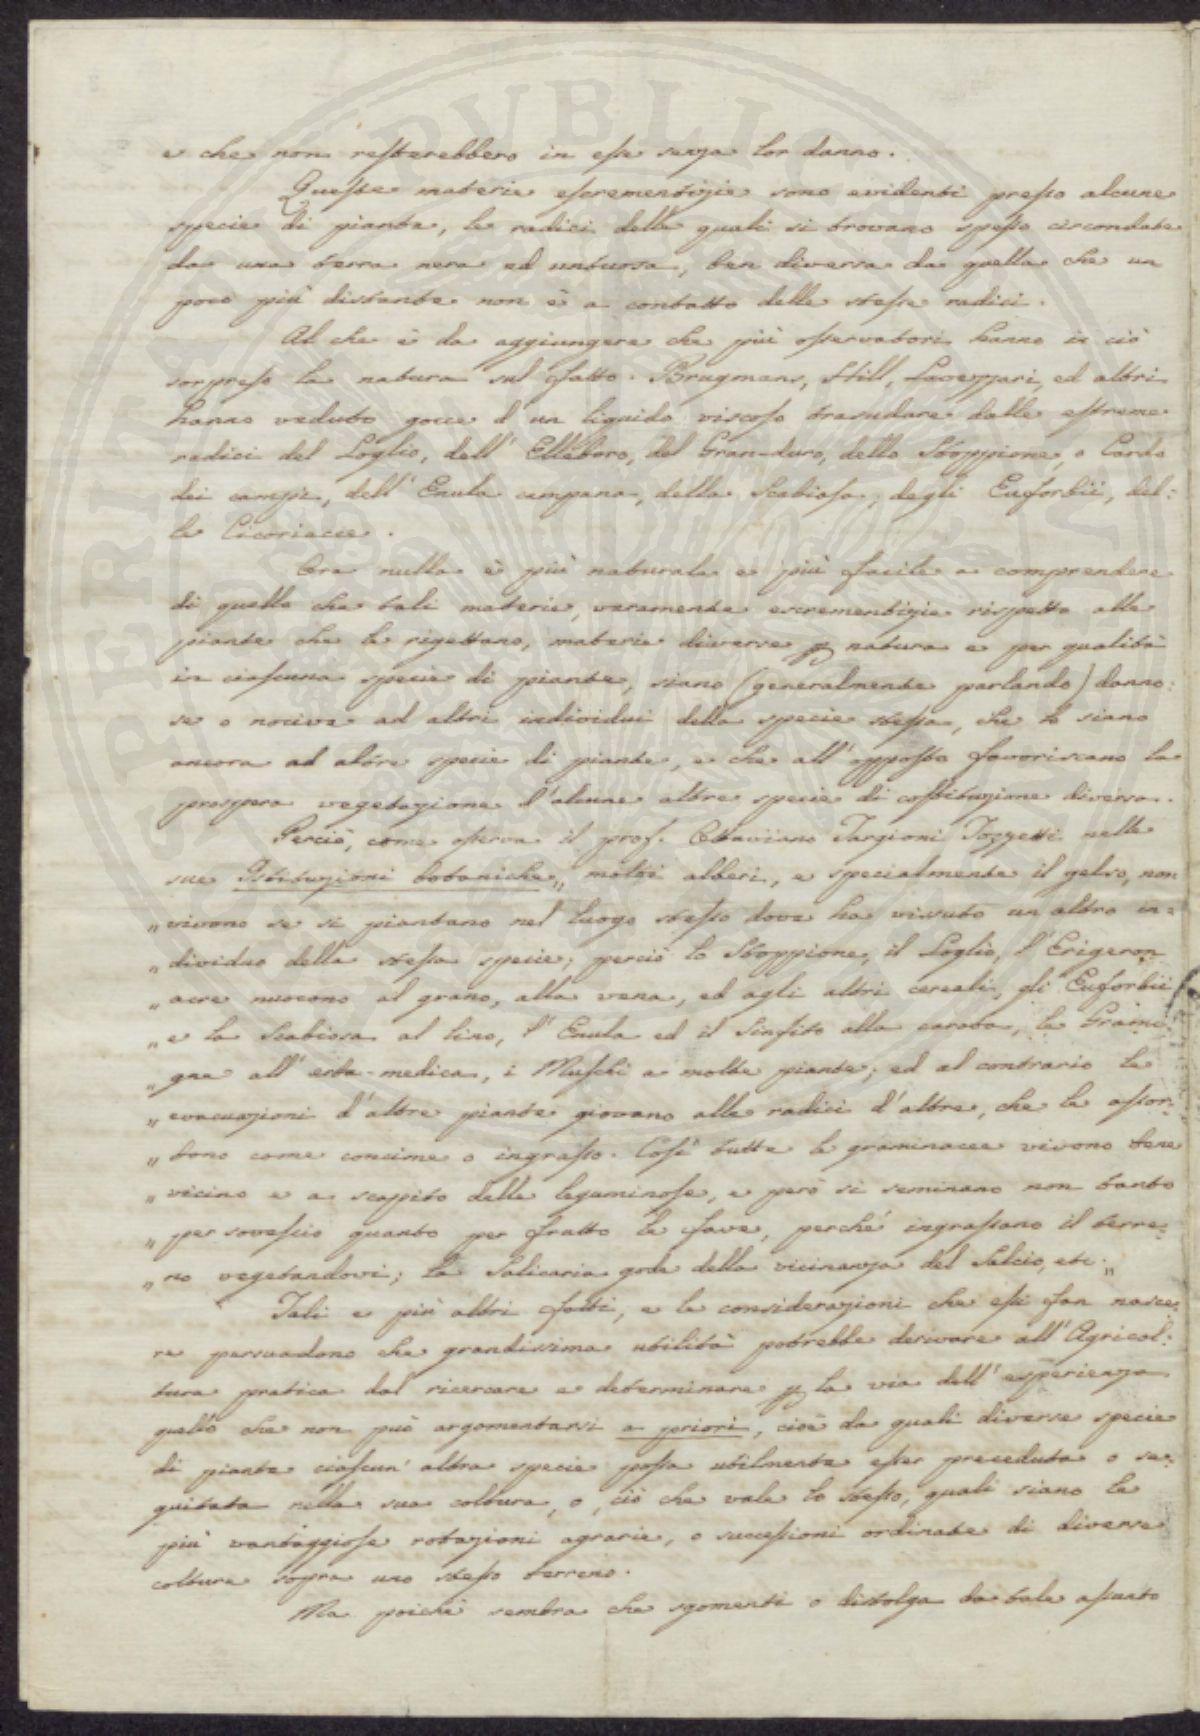 e che non resterebbero in esse senza lor danno.
Queste materie escrementizie sono evidenti presso alcune
specie di piante, le radici delle quali si trovano spesso circondate
da una terra nera ed untuosa, ben diversa da quella che un
poco più distante non è a contatto delle stesse radici.
Al che è da aggiungere che più osservatori hanno in ciò
sorpreso la natura sul fatto. Brugmans, Hill, Lavezzari, ed altri
hanno veduto gocce d'un liquido viscoso trasudare dalle estreme
radici del Loglio, dell'Elleboro, del Gran-duro, dello Stoppione, o Cardo
dei campi, dell'Enula campana, della Scabiosa, degli Euforbii, del:
le Cicoriacee.
Ora nulla è più naturale e più facile a comprendere
di quello che tali materie, veramente escrementizie rispetto alle
piante che le rigettano, materie diverse p natura e per qualità
in ciascuna specie di piante, siano (generalmente parlando) danno:
se o nocive ad altri individui della specie stessa, che lo siano
ancora ad altre specie di piante, e che all'opposto favoriscano la
prospera vegetazione d'alcune altre specie di costituzione diversa.
Perciò, come osserva il prof. Ottaviano Targioni Tozzetti nelle
sue Istituzioni botaniche „ molti alberi, e specialmente il gelso, non
„ vivono se si piantano nel luogo stesso dove ha vissuto un altro in=
„ dividuo della stessa specie; perciò lo Stoppione, il Loglio, l'Erigeron
„ acre nuocono al grano, alla vena, ed agli altri cereali, gli Euforbii
„ e la Scabiosa al lino, l'Enula ed il Sinfito alla carota, le Grami:
„ gne all'erba-medica, i Muschi a molte piante; ed al contrario le
„ evacuazioni d'altre piante giovano alle radici d'altre, che le assor:
„ bono come concime o ingrasso. Così tutte le graminacee vivono bene
„ vicino e a scapito delle leguminose, e però si seminano non tanto
„ per sovescio quanto per frutto le fave, perché ingrassano il terre:
„ no vegetandovi; la Salicaria gode della vicinanza del Salcio, etc. „
Tali e più altri fatti, e le considerazioni che essi fan nasce:
re persuadono che grandissima utilità potrebbe derivare all'Agricol:
tura pratica dal ricercare e determinare p la via dell'esperienza
quello che non può argomentarsi a priori, cioè da quali diverse specie
di piante ciascun'altra specie possa utilmente esser preceduta o se:
guitata nella sua coltura, o, ciò che vale lo stesso, quali siano le
più vantaggiose rotazioni agrarie, o successioni ordinate di diverse
colture sopra uno stesso terreno.
Ma poiché sembra che sgomenti o distolga da tale assunto